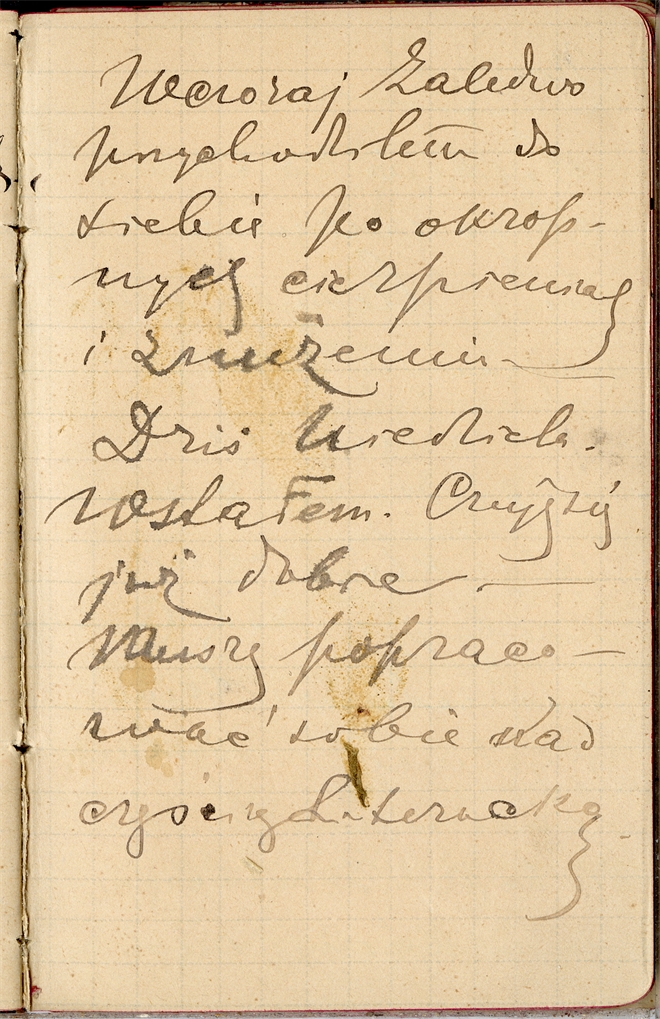 Wczoraj zaledwo
przychodziłem do
siebie po okrop-
nych cierpieniach
i znużeniu
Dziś Niedziela.
Wstałem. Czuję się
już dobrze —
Muszę popraco-
wać sobie nad
częścią Literacką